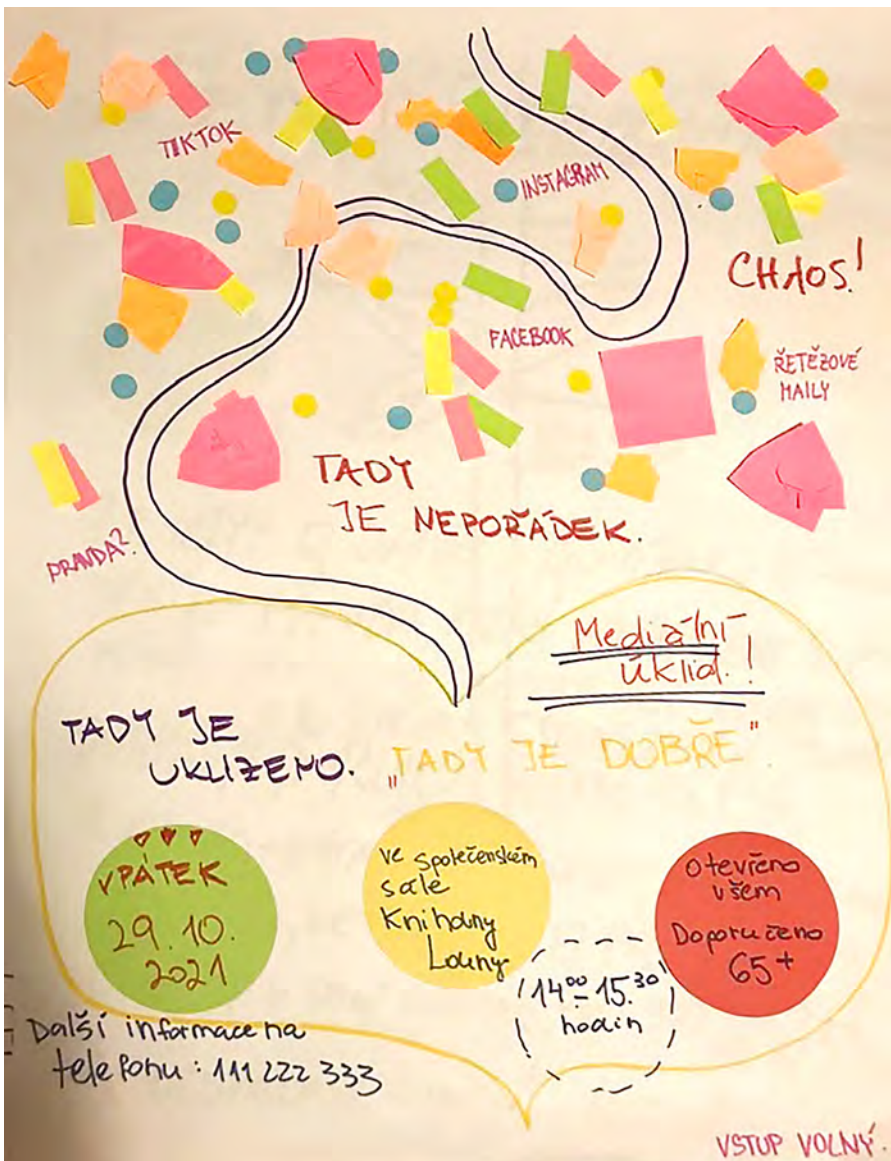 TIKTOK
INSTAGRAM
CHAOS!
FACEBOOK
ŘETĚZOVÉ
MAILY
TADY
JE NEPOŘÁDEK.
PRAVDA?
Mediální
úklid.!
TADY JE
UKLÍZENO.
„TADY JE DOBŘE“.
V PÁTEK
29.10.
2021
ve společenském
sále
Knihovny
Louny
14⁰⁰ – 15.³⁰
hodin
Otevřeno
všem
Doporučeno
65+
Další informace na
telefonu: 111 222 333
VSTUP VOLNÝ.